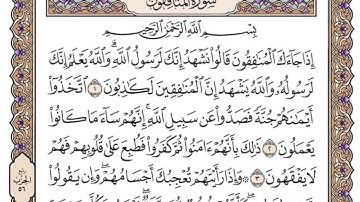 سُورَةُ المُنَافِقُونَ
بِسْمِ ٱللَّهِ ٱلرَّحْمَٰنِ ٱلرَّحِيمِ
إِذَا جَآءَكَ ٱلْمُنَٰفِقُونَ قَالُوا۟ نَشْهَدُ إِنَّكَ لَرَسُولُ ٱللَّهِ ۗ وَٱللَّهُ يَعْلَمُ إِنَّكَ
لَرَسُولُهُۥ وَٱللَّهُ يَشْهَدُ إِنَّ ٱلْمُنَٰفِقِينَ لَكَٰذِبُونَ ١ ٱتَّخَذُوٓا۟
أَيْمَٰنَهُمْ جُنَّةً فَصَدُّوا۟ عَن سَبِيلِ ٱللَّهِ ۚ إِنَّهُمْ سَآءَ مَا كَانُوا۟
يَعْمَلُونَ ٢ ذَٰلِكَ بِأَنَّهُمْ ءَامَنُوا۟ ثُمَّ كَفَرُوا۟ فَطُبِعَ عَلَىٰ قُلُوبِهِمْ فَهُمْ
لَا يَفْقَهُونَ ٣ ۞ وَإِذَا رَأَيْتَهُمْ تُعْجِبُكَ أَجْسَامُهُمْ ۖ وَإِن يَقُولُوا۟
ربع
الحزب
٥٦